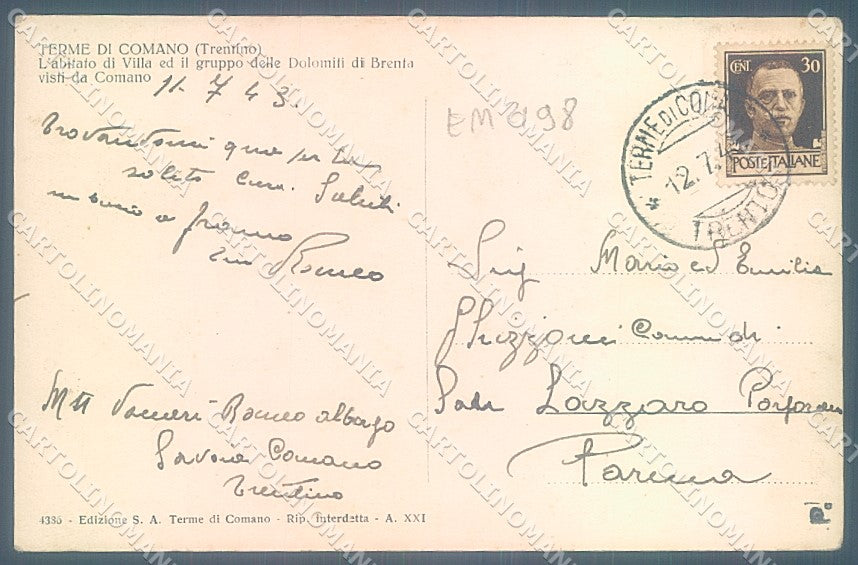 TERME DI COMANO (Trentino)
L'abitato di Villa ed il gruppo delle Dolomiti di Brenta
visti da Comano
11-7 43
Trovandomi qua per la
solita cura. Saluti
un bacio a Franco
Romeo
Romeo albergo
Savoia Comano
Trentino
4335 - Edizione S. A. Terme di Comano - Rip. interdetta - A. XXI
EM 098
CENT. 30
POSTE ITALIANE
TERME DI COMANO
12.7.43
TRENTO
Sig Mario ed Emilia
Lazzaro
Parma
CARTOLINOMANIA